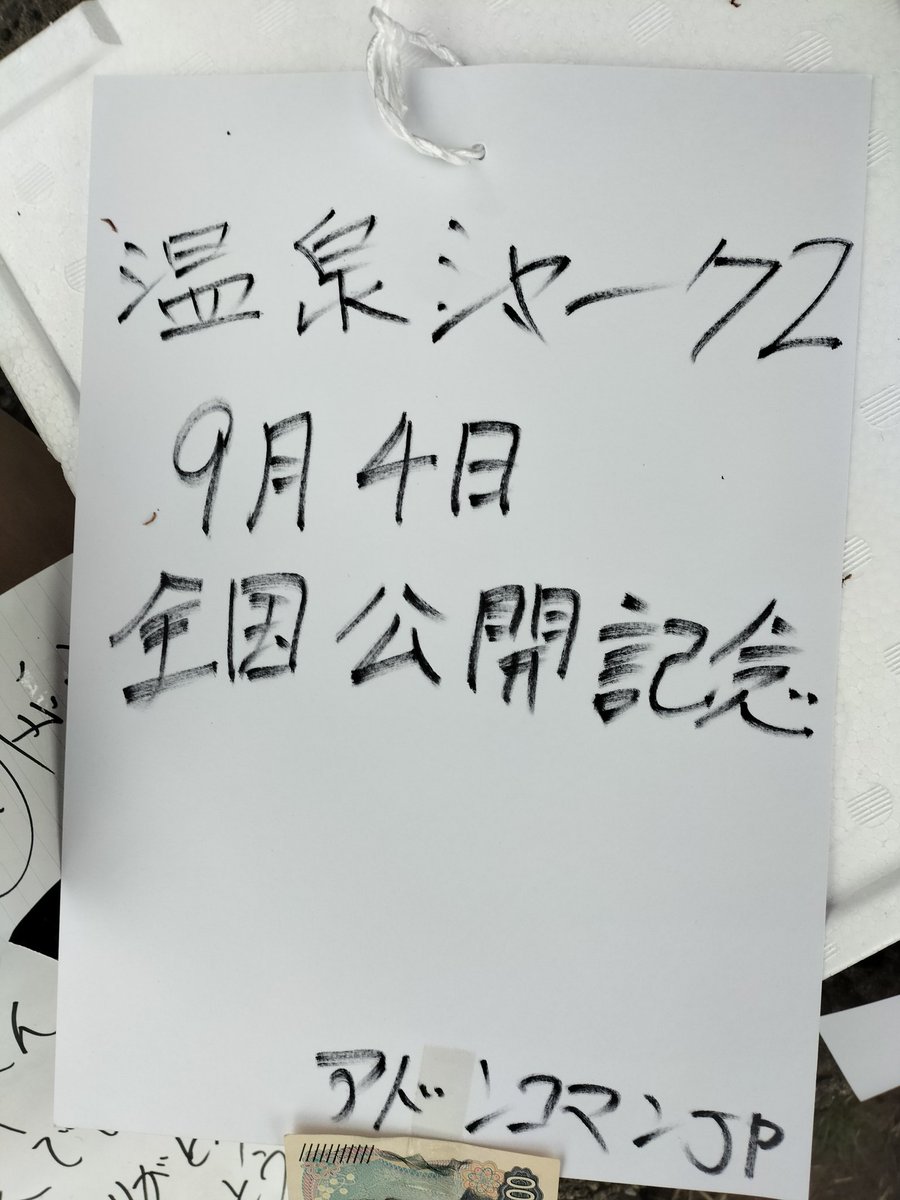 温泉シャーク2
9月4日
全国公開記念
アドンコマンJP